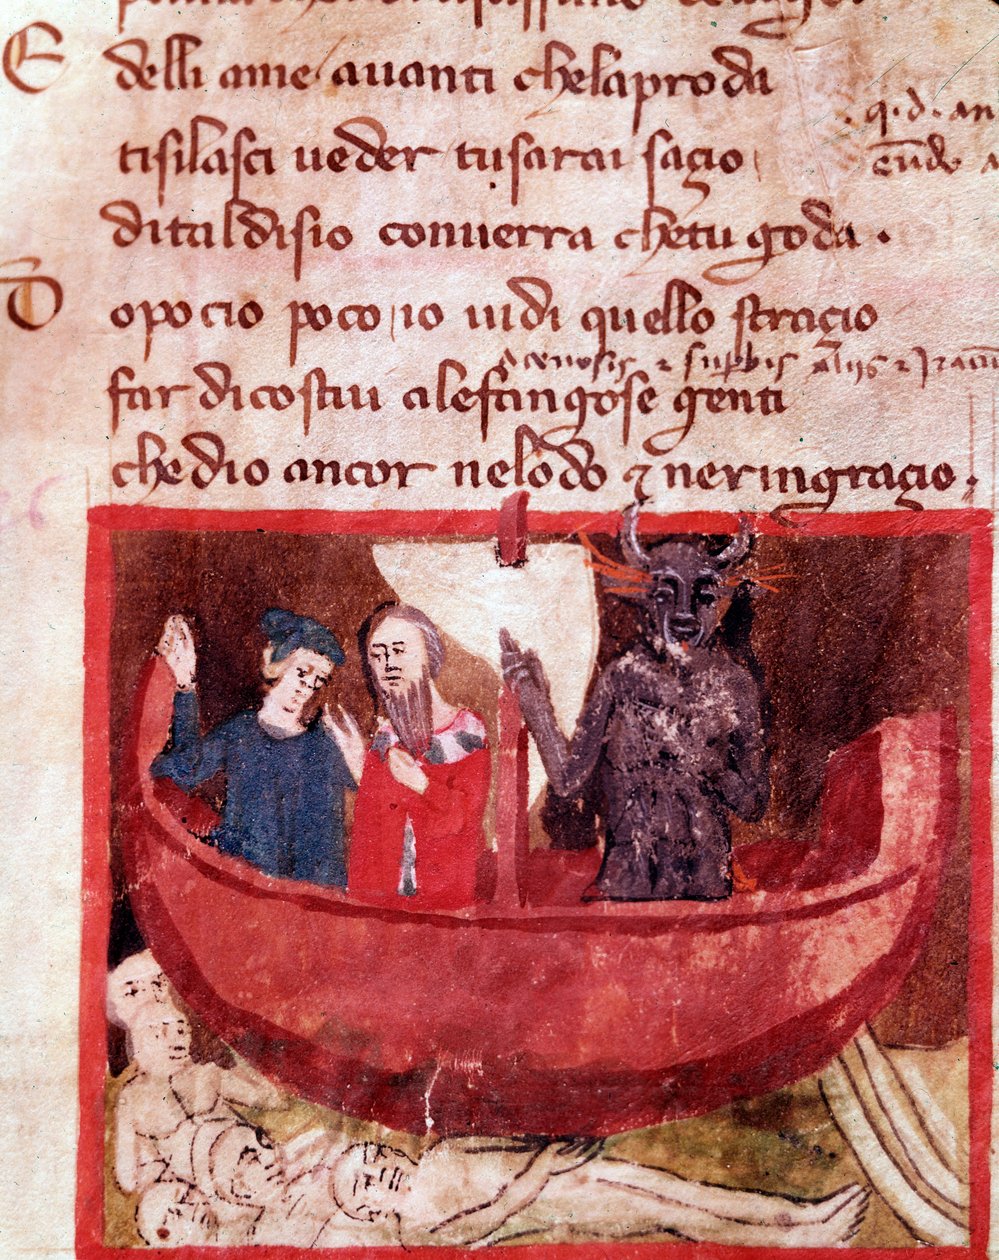 E delli ame auanti chelaproda
tisilasci ueder tusarai sacio
dital disio conuerra chetu goda .
D opo cio poco io uidi quello stracio
far dicostui alefangose genti
che dio ancor nelodo ⁊ neringracio .
q. d. an